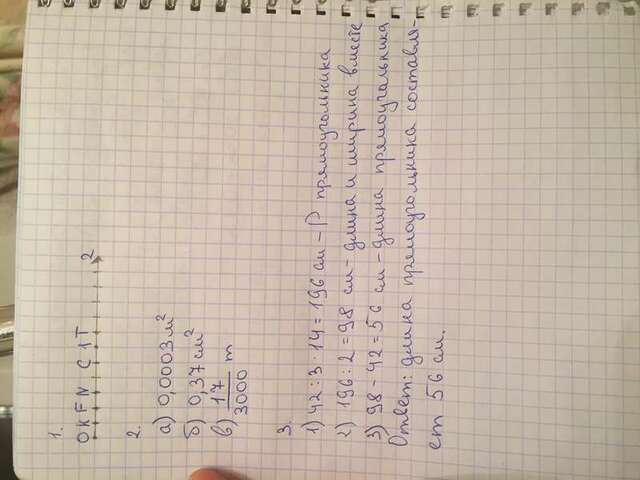 1.
O K F N C 1 T 2
2.
а) 0,0003 м²
б) 0,37 см²
в) 17/3000 т
3.
1) 42 : 3 · 14 = 196 см – P прямоугольника
2) 196 : 2 = 98 см – длина и ширина вместе
3) 98 – 42 = 56 см – длина прямоугальника
Ответ: длина прямоугольника составля-
ет 56 см.